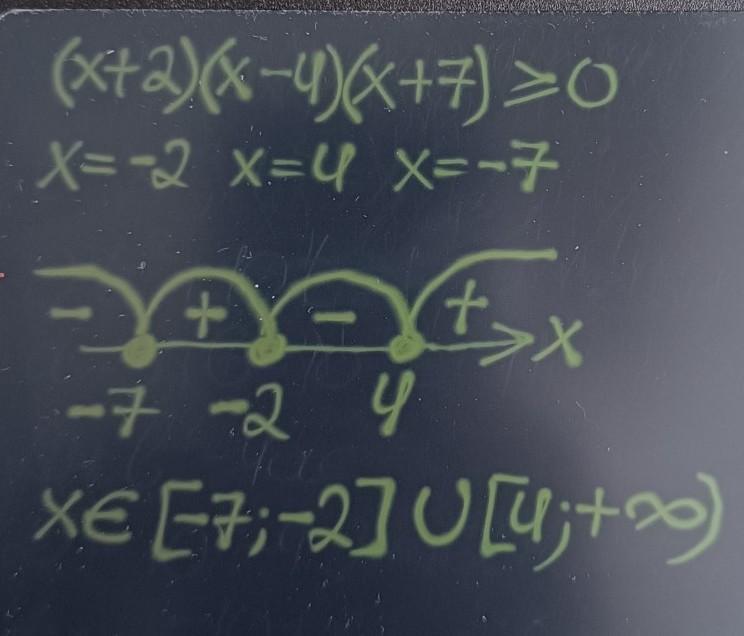 (x+2)(x-4)(x+7) ≥ 0
x=-2 x=4 x=-7
- + - + x
-7 -2 4
x∈[-7;-2]∪[4;+∞)